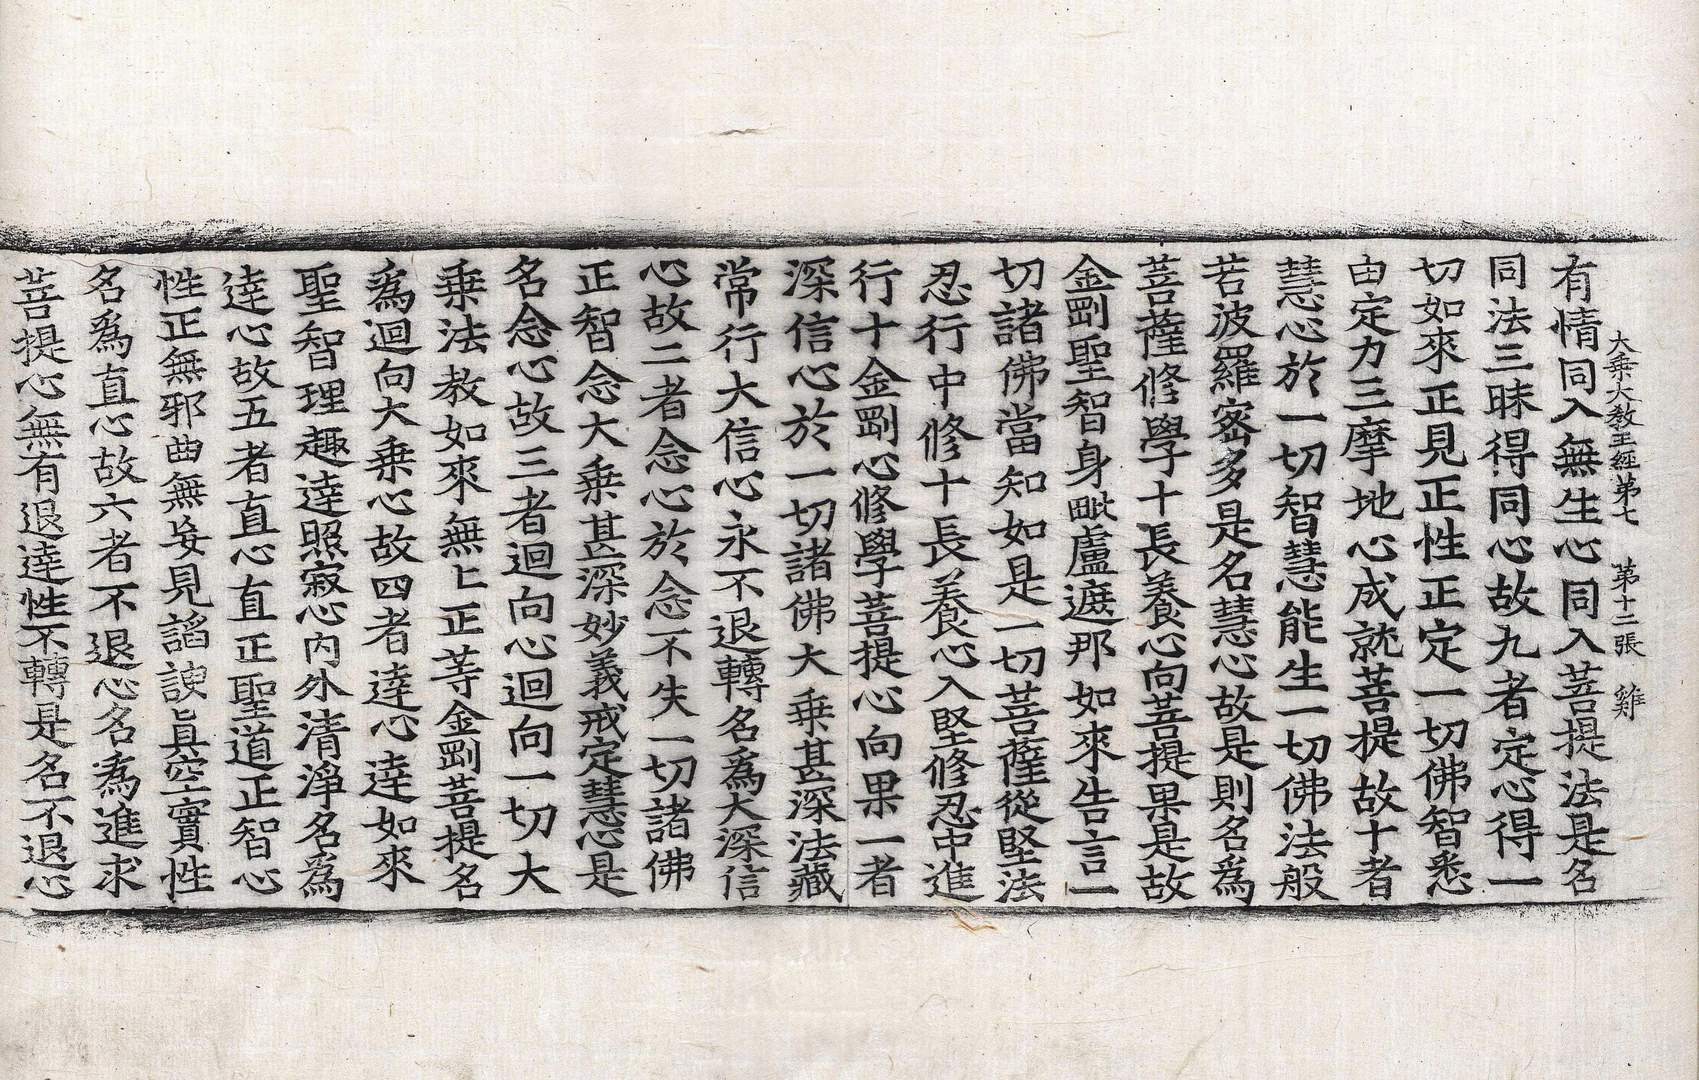 大乗大教王經第七 第十二張 雞
有情同入無生心同入菩提法是名
同法三昧得同心故九者定心得一
切如來正見正性正定一切佛智悉
由定力三摩地心成就菩提故十者
慧心於一切智慧能生一切佛法般
若波羅宻多是名慧心故是則名為
菩薩修學十長養心向菩提果是故
金剛聖智身毗盧遮那如來告言一
切諸佛當知如是一切菩薩從堅法
忍行中修十長養心入堅修忍中進
行十金剛心修學菩提心向果一者
深信心於一切諸佛大乗甚深法藏
常行大信心永不退轉名為大深信
心故二者念心於念不失一切諸佛
正智念大乗甚深妙義戒定慧心是
名念心故三者迴向心迴向一切大
乗法教如來無上正等金剛菩提名
為迴向大乗心故四者達心達如來
聖智理趣達照寂心內外清淨名為
達心故五者直心直正聖道正智心
性正無邪曲無妄見諂諛眞空實性
名為直心故六者不退心名為進求
菩提心無有退達性不轉是名不退心